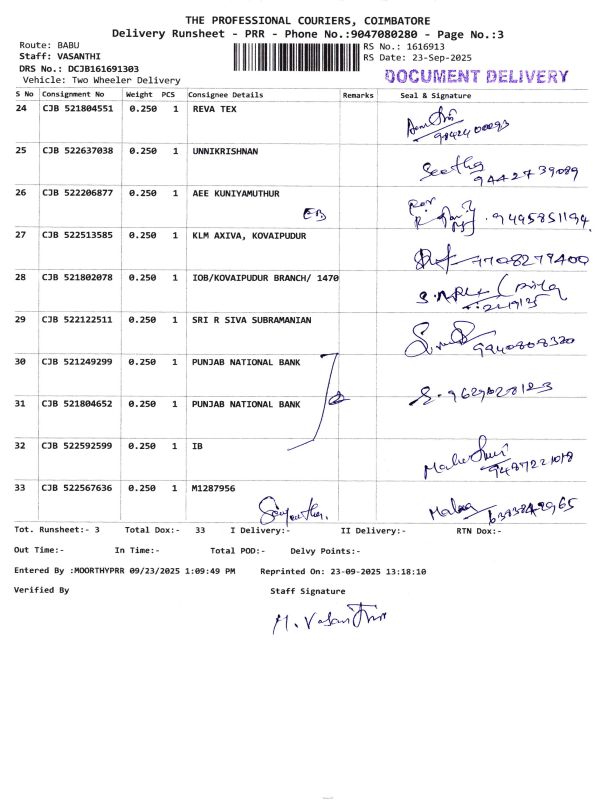 THE PROFESSIONAL COURIERS, COIMBATORE
Delivery Runsheet - PRR - Phone No.:9047080280 - Page No.:3
Route: BABU RS No.: 1616913
Staff: VASANTHI RS Date: 23-Sep-2025
DRS No.: DCJB161691303 DOCUMENT DELIVERY
Vehicle: Two Wheeler Delivery
S No Consignment No Weight PCS Consignee Details Remarks Seal & Signature
24 CJB 521804551 0.250 1 REVA TEX
25 CJB 522637038 0.250 1 UNNIKRISHNAN
Seetha
9442739089
26 CJB 522206877 0.250 1 AEE KUNIYAMUTHUR
EB
9495851194
27 CJB 522513585 0.250 1 KLM AXIVA, KOVAIPUDUR
9708279400
28 CJB 521802078 0.250 1 IOB/KOVAIPUDUR BRANCH/ 1470
29 CJB 522122511 0.250 1 SRI R SIVA SUBRAMANIAN
9940808320
30 CJB 521249299 0.250 1 PUNJAB NATIONAL BANK
31 CJB 521804652 0.250 1 PUNJAB NATIONAL BANK
32 CJB 522592599 0.250 1 IB
9487221018
33 CJB 522567636 0.250 1 M1287956
Tot. Runsheet:- 3 Total Dox:- 33 I Delivery:- II Delivery:- RTN Dox:-
Out Time:- In Time:- Total POD:- Delvy Points:-
Entered By :MOORTHYPRR 09/23/2025 1:09:49 PM Reprinted On: 23-09-2025 13:18:10
Verified By Staff Signature
M. Vasanthi